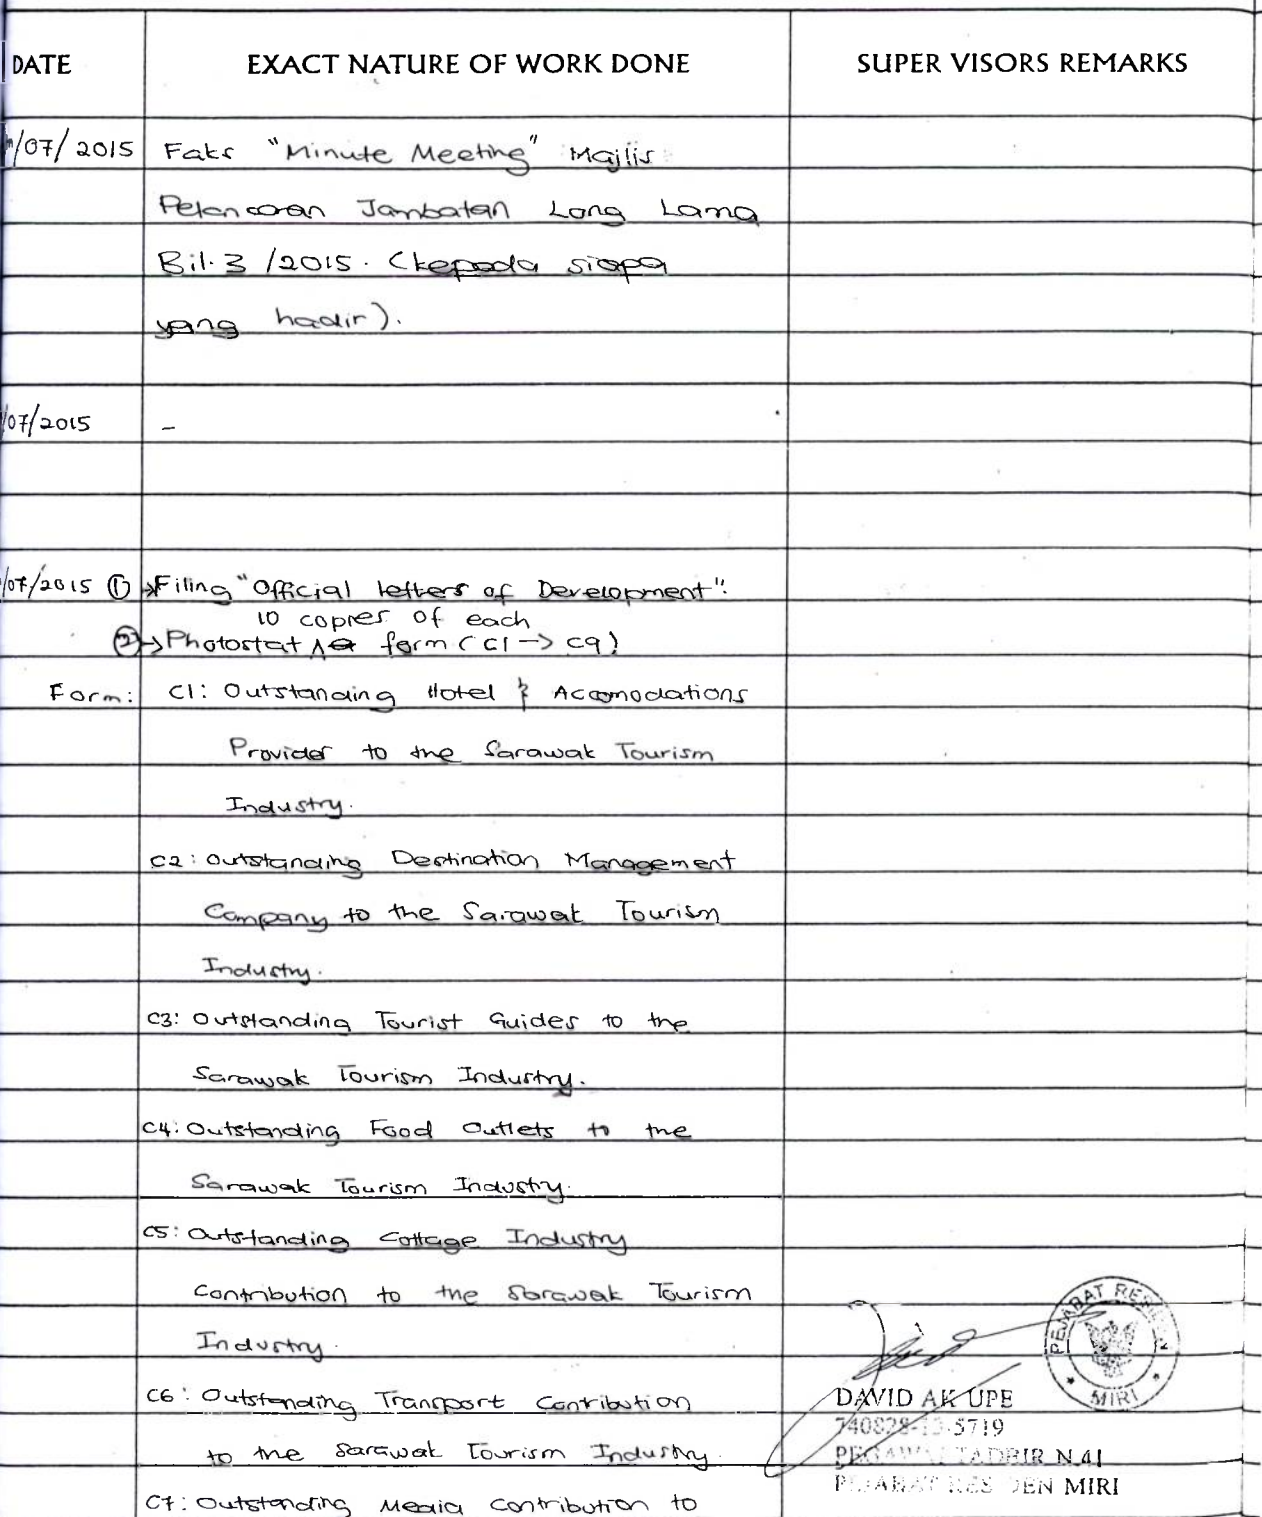 DATE EXACT NATURE OF WORK DONE SUPER VISORS REMARKS
/07/2015 Faks "Minute Meeting" Majlis
Pelancaran Jambatan Long Lama
Bil. 3 /2015. (kepada siapa
yang hadir).
/07/2015 -
/07/2015 ① → Filing "Official letters of Development".
10 copies of each
② → Photostat form (C1 → C9)
Form: C1: Outstanding Hotel & Accomodations
Provider to the Sarawak Tourism
Industry.
C2: Outstanding Destination Management
Company to the Sarawak Tourism
Industry.
C3: Outstanding Tourist Guides to the
Sarawak Tourism Industry.
C4: Outstanding Food Outlets to the
Sarawak Tourism Industry.
C5: Outstanding Cottage Industry
Contribution to the Sarawak Tourism
Industry.
C6: Outstanding Transport Contribution
to the Sarawak Tourism Industry.
C7: Outstanding Media Contribution to
PEJABAT RESIDEN
MIRI
DAVID AK UPE
740828-13-5719
PEGAWAI TADBIR N.41
PEJABAT RESIDEN MIRI